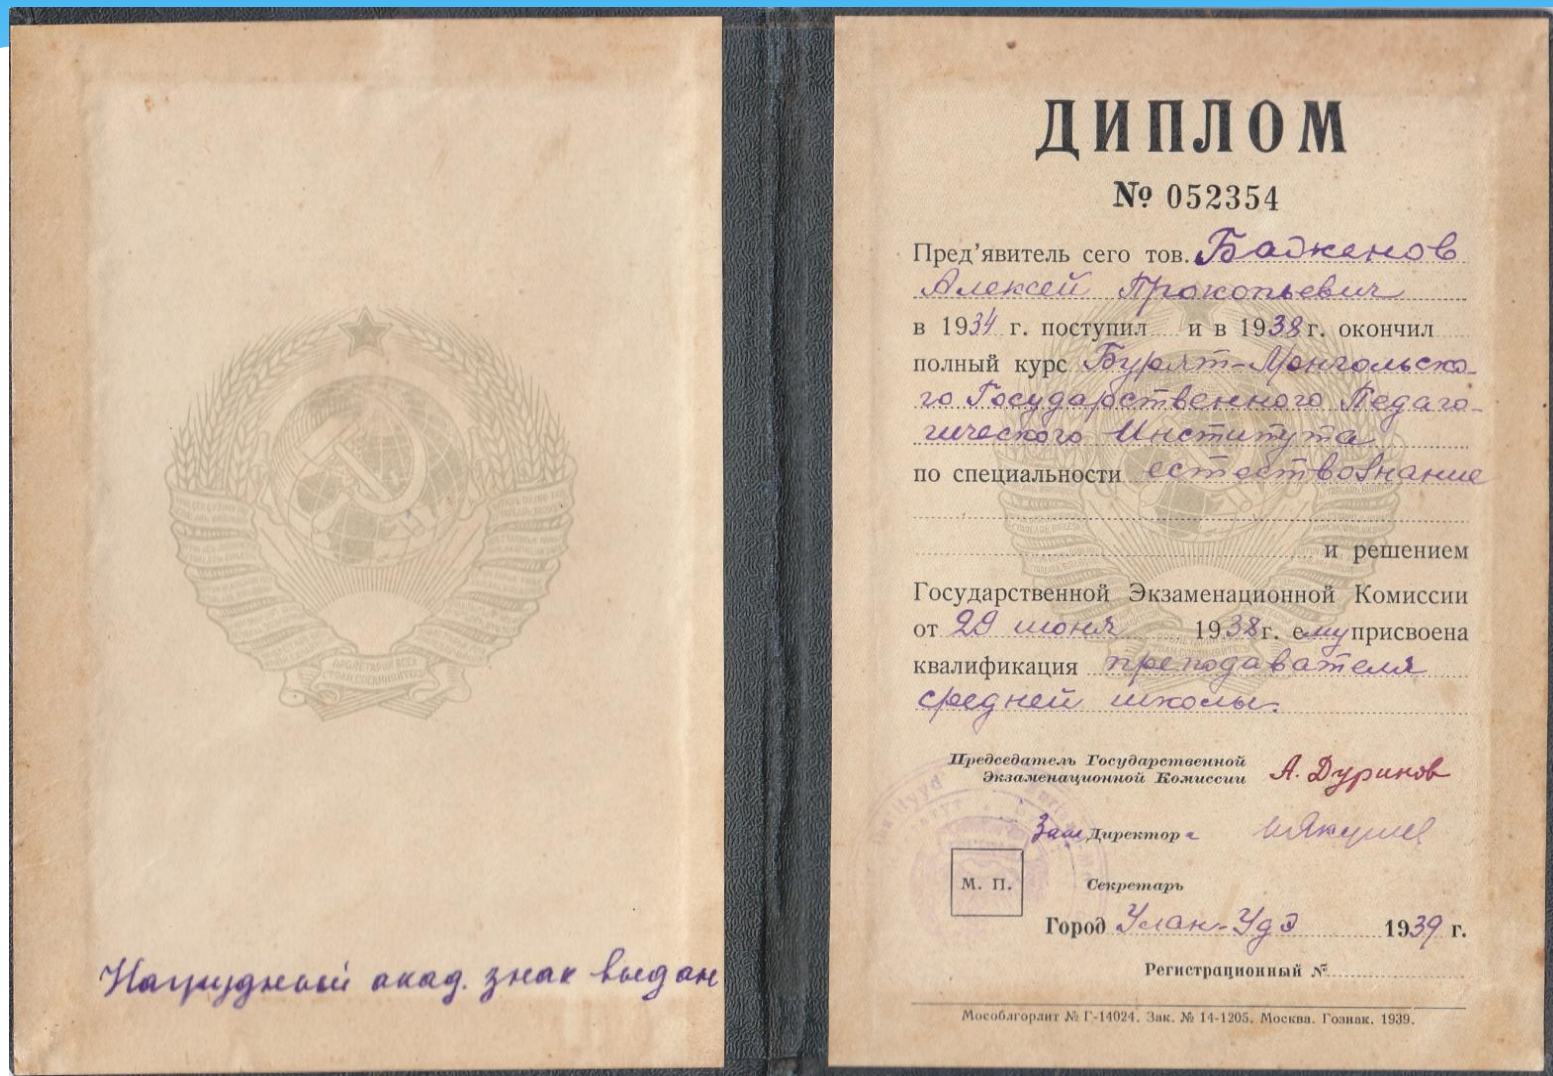 Нагрудный акад. знак выдан
ДИПЛОМ
№ 052354
Пред'явитель сего тов. Бадженов
Алексей Прокопьевич
в 1934 г. поступил и в 1938 г. окончил
полный курс Бурят-Монгольско-
го Государственного Педаго-
гического Института
по специальности естествознание
и решением
Государственной Экзаменационной Комиссии
от 29 июня 1938 г. ему присвоена
квалификация преподавателя
средней школы.
Председатель Государственной
Экзаменационной Комиссии
Зам Директора
М. П.
Секретарь
Город Улан-Удэ 1939 г.
Регистрационный №
Мособлгорлит № Г-14024. Зак. № 14-1205. Москва. Гознак. 1939.